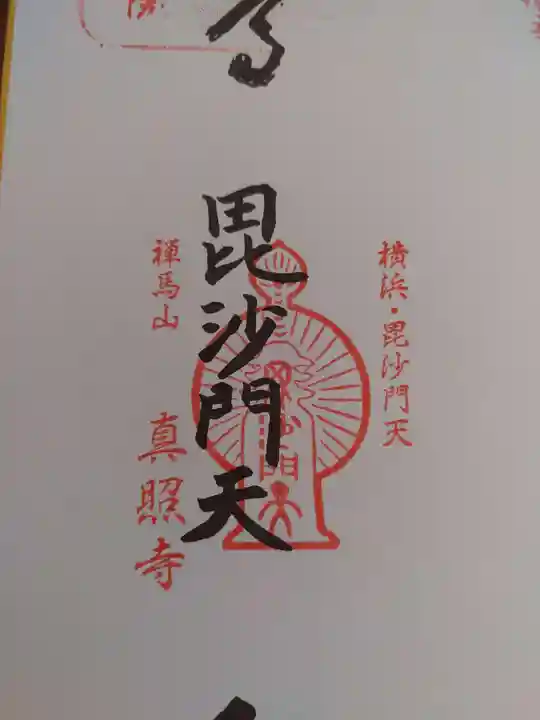 横浜・毘沙門天
毘沙門天
毘沙門天
禅馬山
真照寺